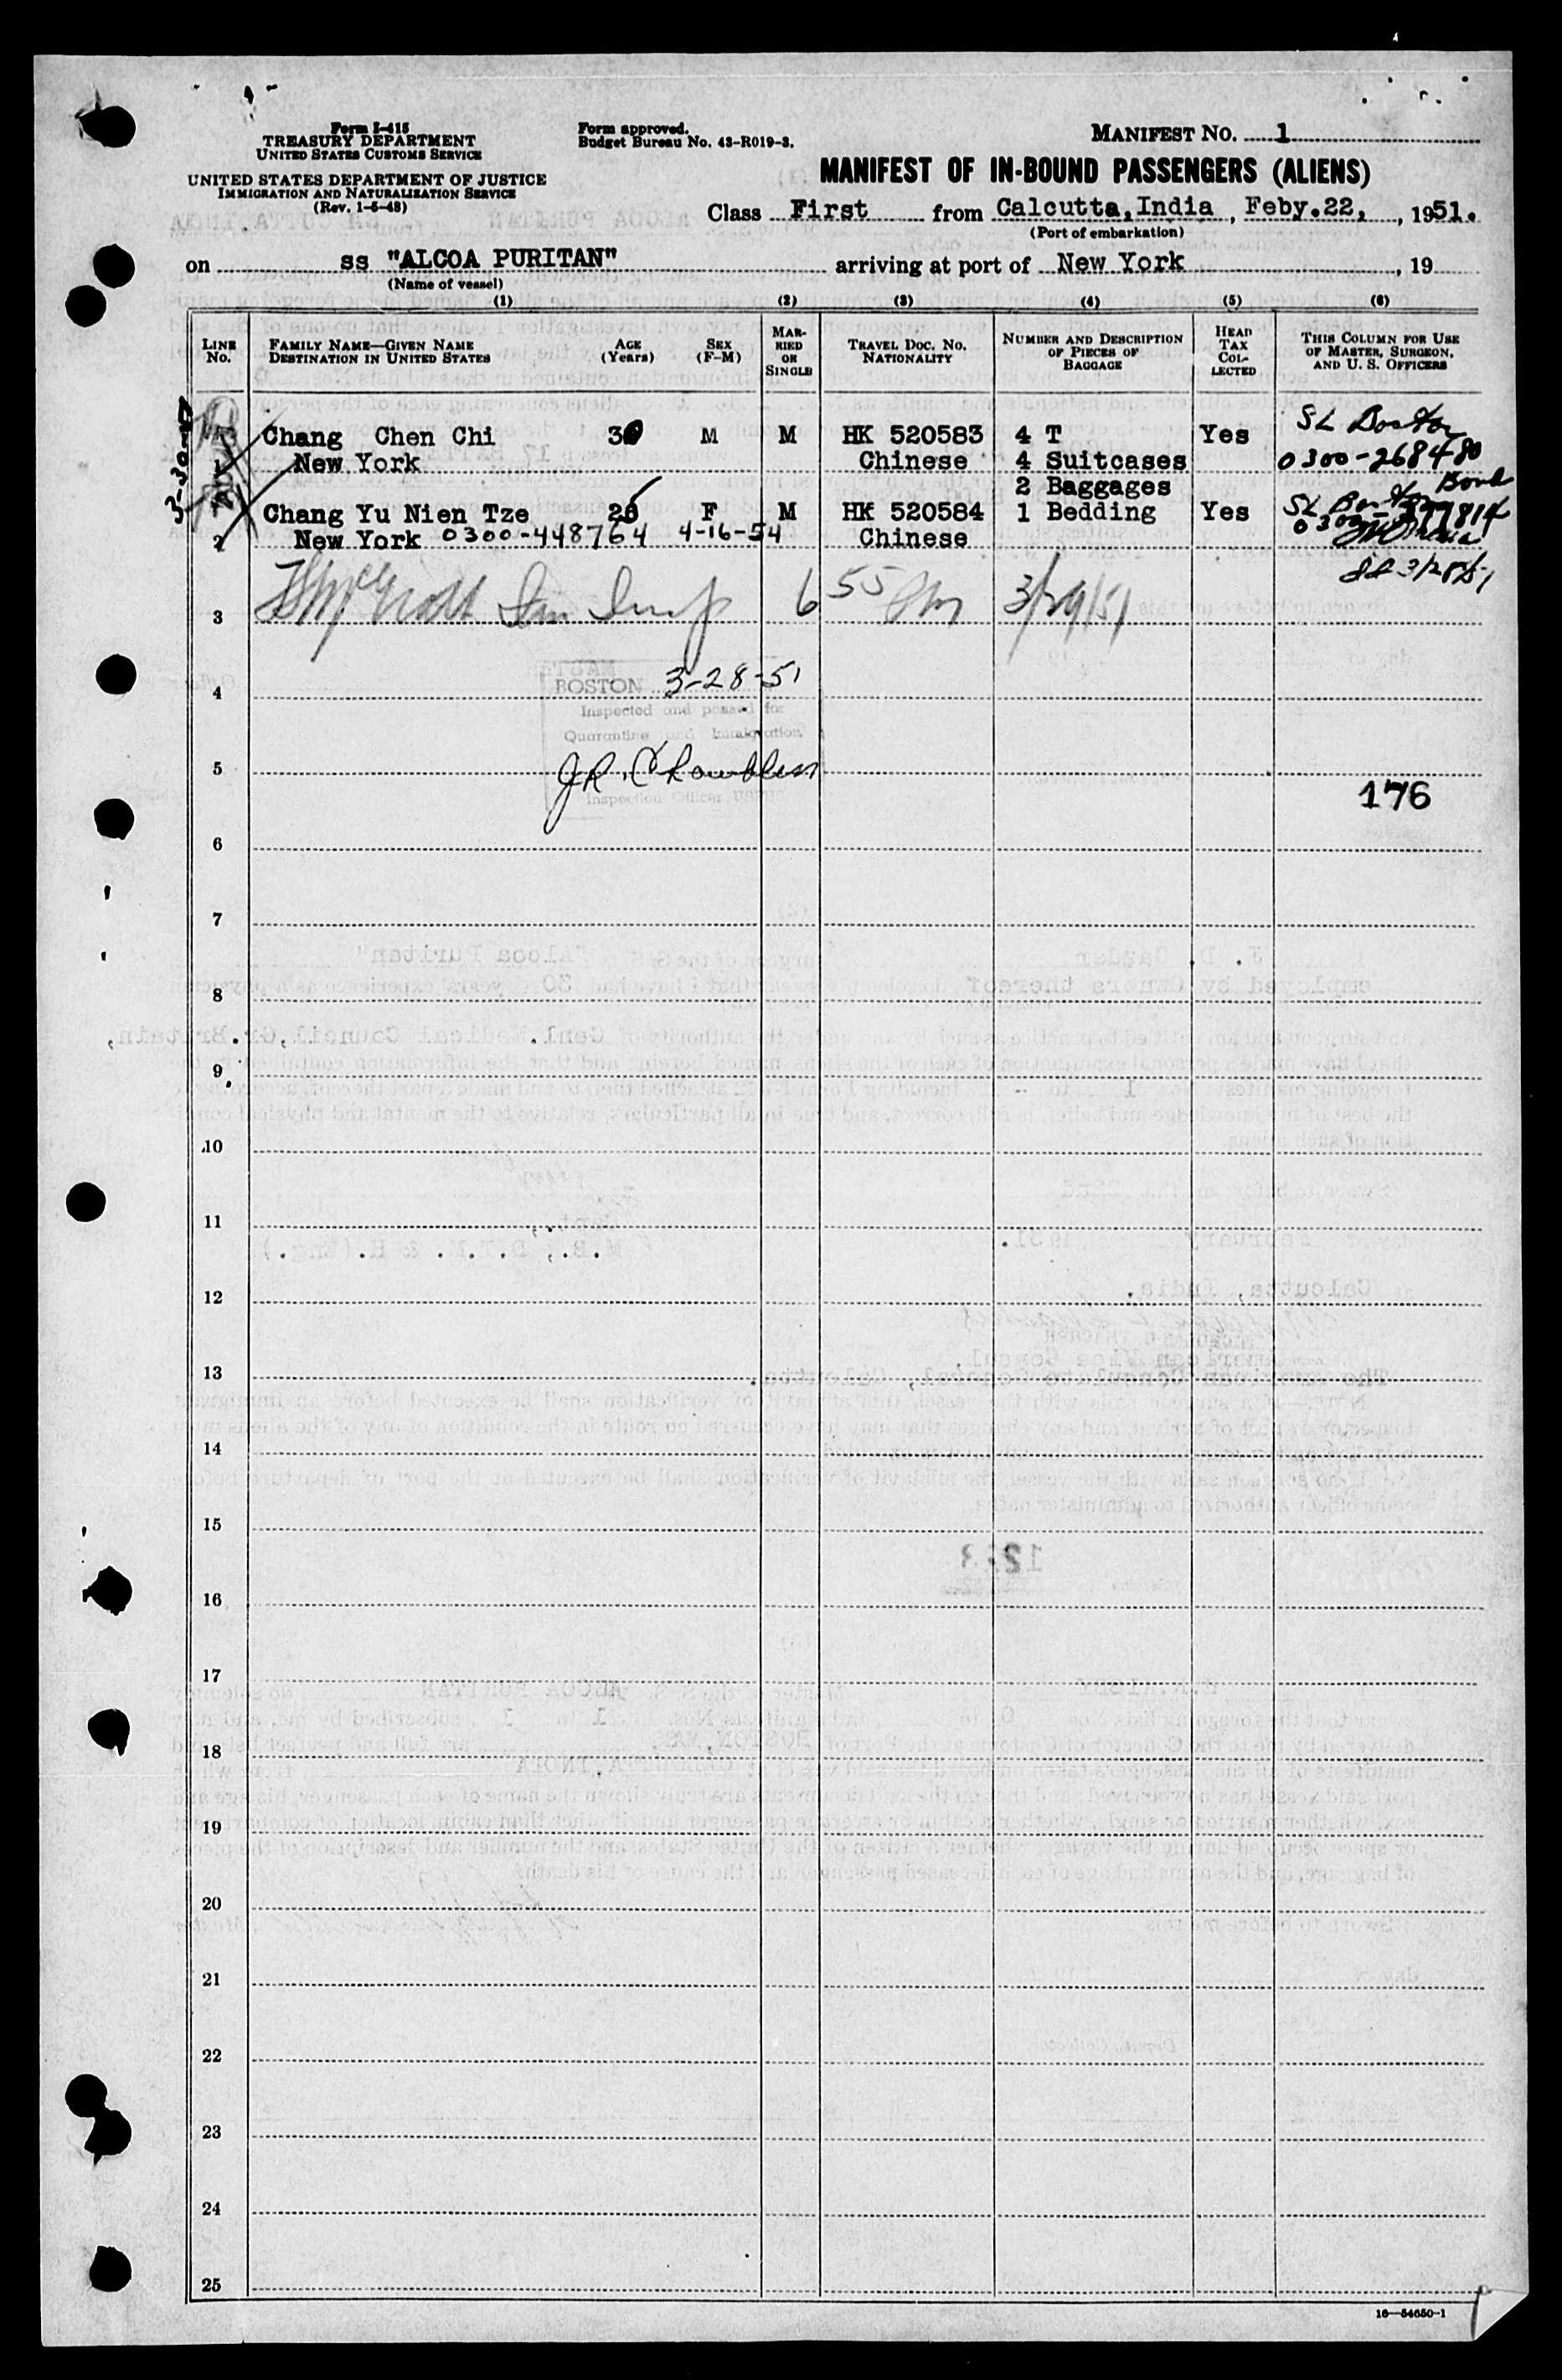 Form I-415
TREASURY DEPARTMENT
UNITED STATES CUSTOMS SERVICE
UNITED STATES DEPARTMENT OF JUSTICE
IMMIGRATION AND NATURALIZATION SERVICE
(Rev. 1-5-48)
Form approved.
Budget Bureau No. 43-R019-3.
MANIFEST NO. 1
MANIFEST OF IN-BOUND PASSENGERS (ALIENS)
Class First from Calcutta, India, Feby.22, 1951.
(Port of embarkation)
on ss "ALCOA PURITAN" arriving at port of New York, 19
(Name of vessel)
(1) (2) (3) (4) (5) (6)
LINE No. FAMILY NAME—GIVEN NAME DESTINATION IN UNITED STATES AGE (Years) SEX (F-M) MARRIED OR SINGLE TRAVEL DOC. NO. NATIONALITY NUMBER AND DESCRIPTION OF PIECES OF BAGGAGE HEAD TAX COLLECTED THIS COLUMN FOR USE OF MASTER, SURGEON, AND U. S. OFFICERS
Chang Chen Chi M M HK 520583 4 T Yes SL Boston
1 New York Chinese 4 Suitcases 0300-268480
2 Baggages
Chang Yu Nien Tze F M HK 520584 1 Bedding Yes SL Boston
2 New York 0300-448764 4-16-54 Chinese
3/28/51
3 6 55 3/29/51
4 BOSTON 3-28-51
Inspected and passed for
Quarantine and Immigration
5 J.R. Chambliss
Inspection Officer, USPHS
176
6
7
8
9
10
11
12
13
14
15
16
17
18
19
20
21
22
23
24
25
16—54650-1